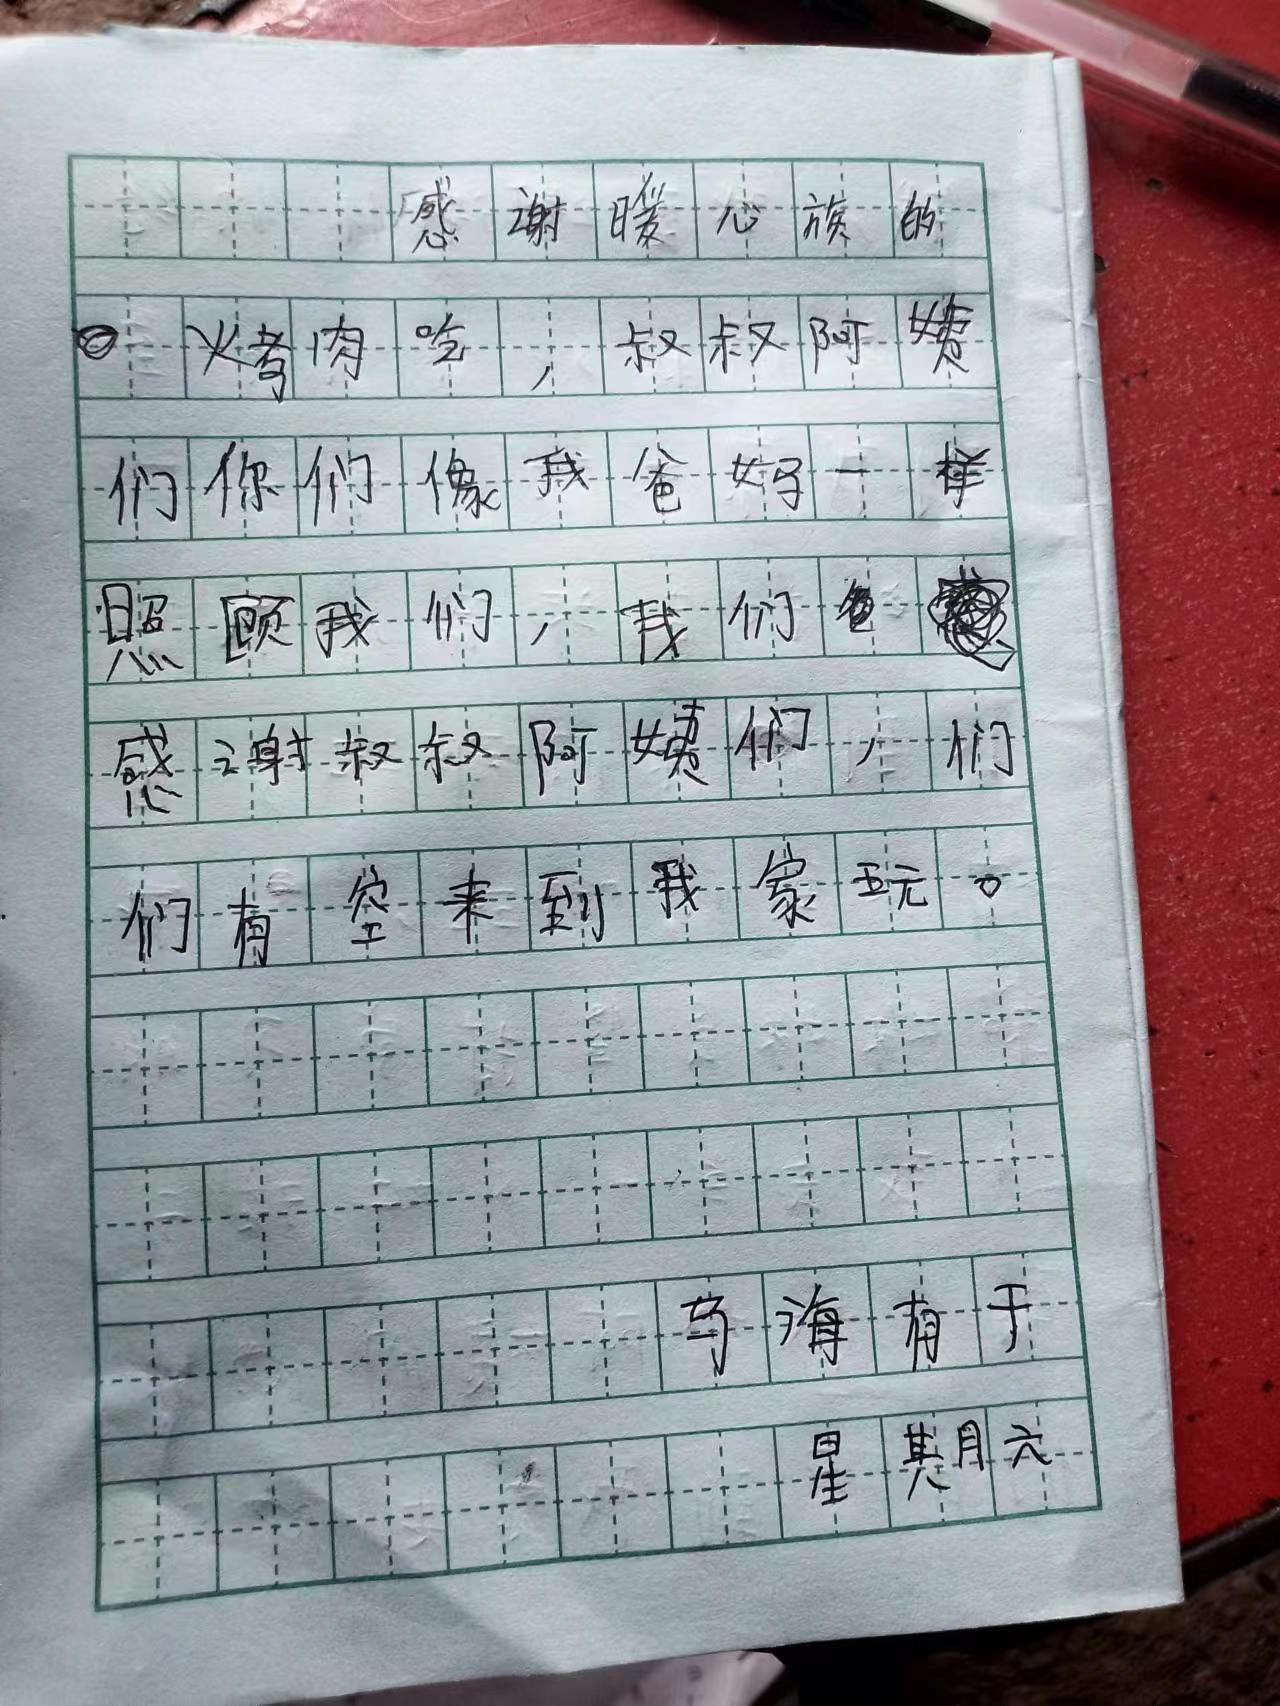 感谢暖心族的
烤肉吃，叔叔阿姨
们你们像我爸妈一样
照顾我们，我们
感谢叔叔阿姨们，们
们有空来到我家玩。
马海有于
星期六